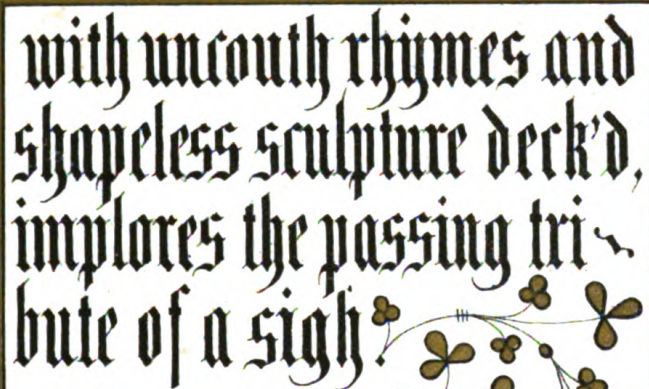 with uncouth rhymes and
shapeless sculpture deck'd,
implores the passing tri-
bute of a sigh.